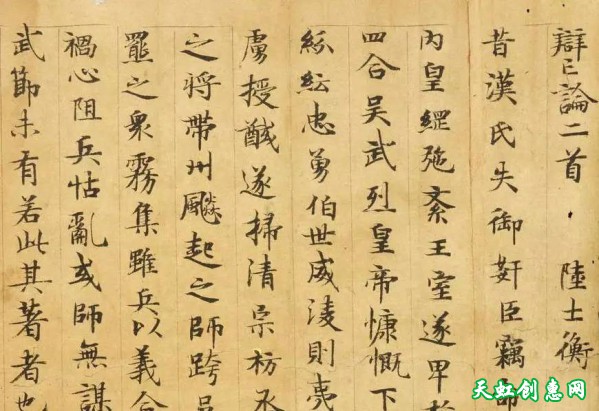 辯亡論二首 陸士衡
昔漢氏失御奸臣竊命
內皇綱弛紊王室遂卑
四合吴武烈皇帝慷慨下
紛紜忠勇伯世威淩則夷
虜授馘遂掃清宗枋
之將帶州飈起之師跨邑
羆之衆霧集雖兵以義合
禍心阻兵怙亂或師無謀
武節未有若此其著者也
天虹创惠网